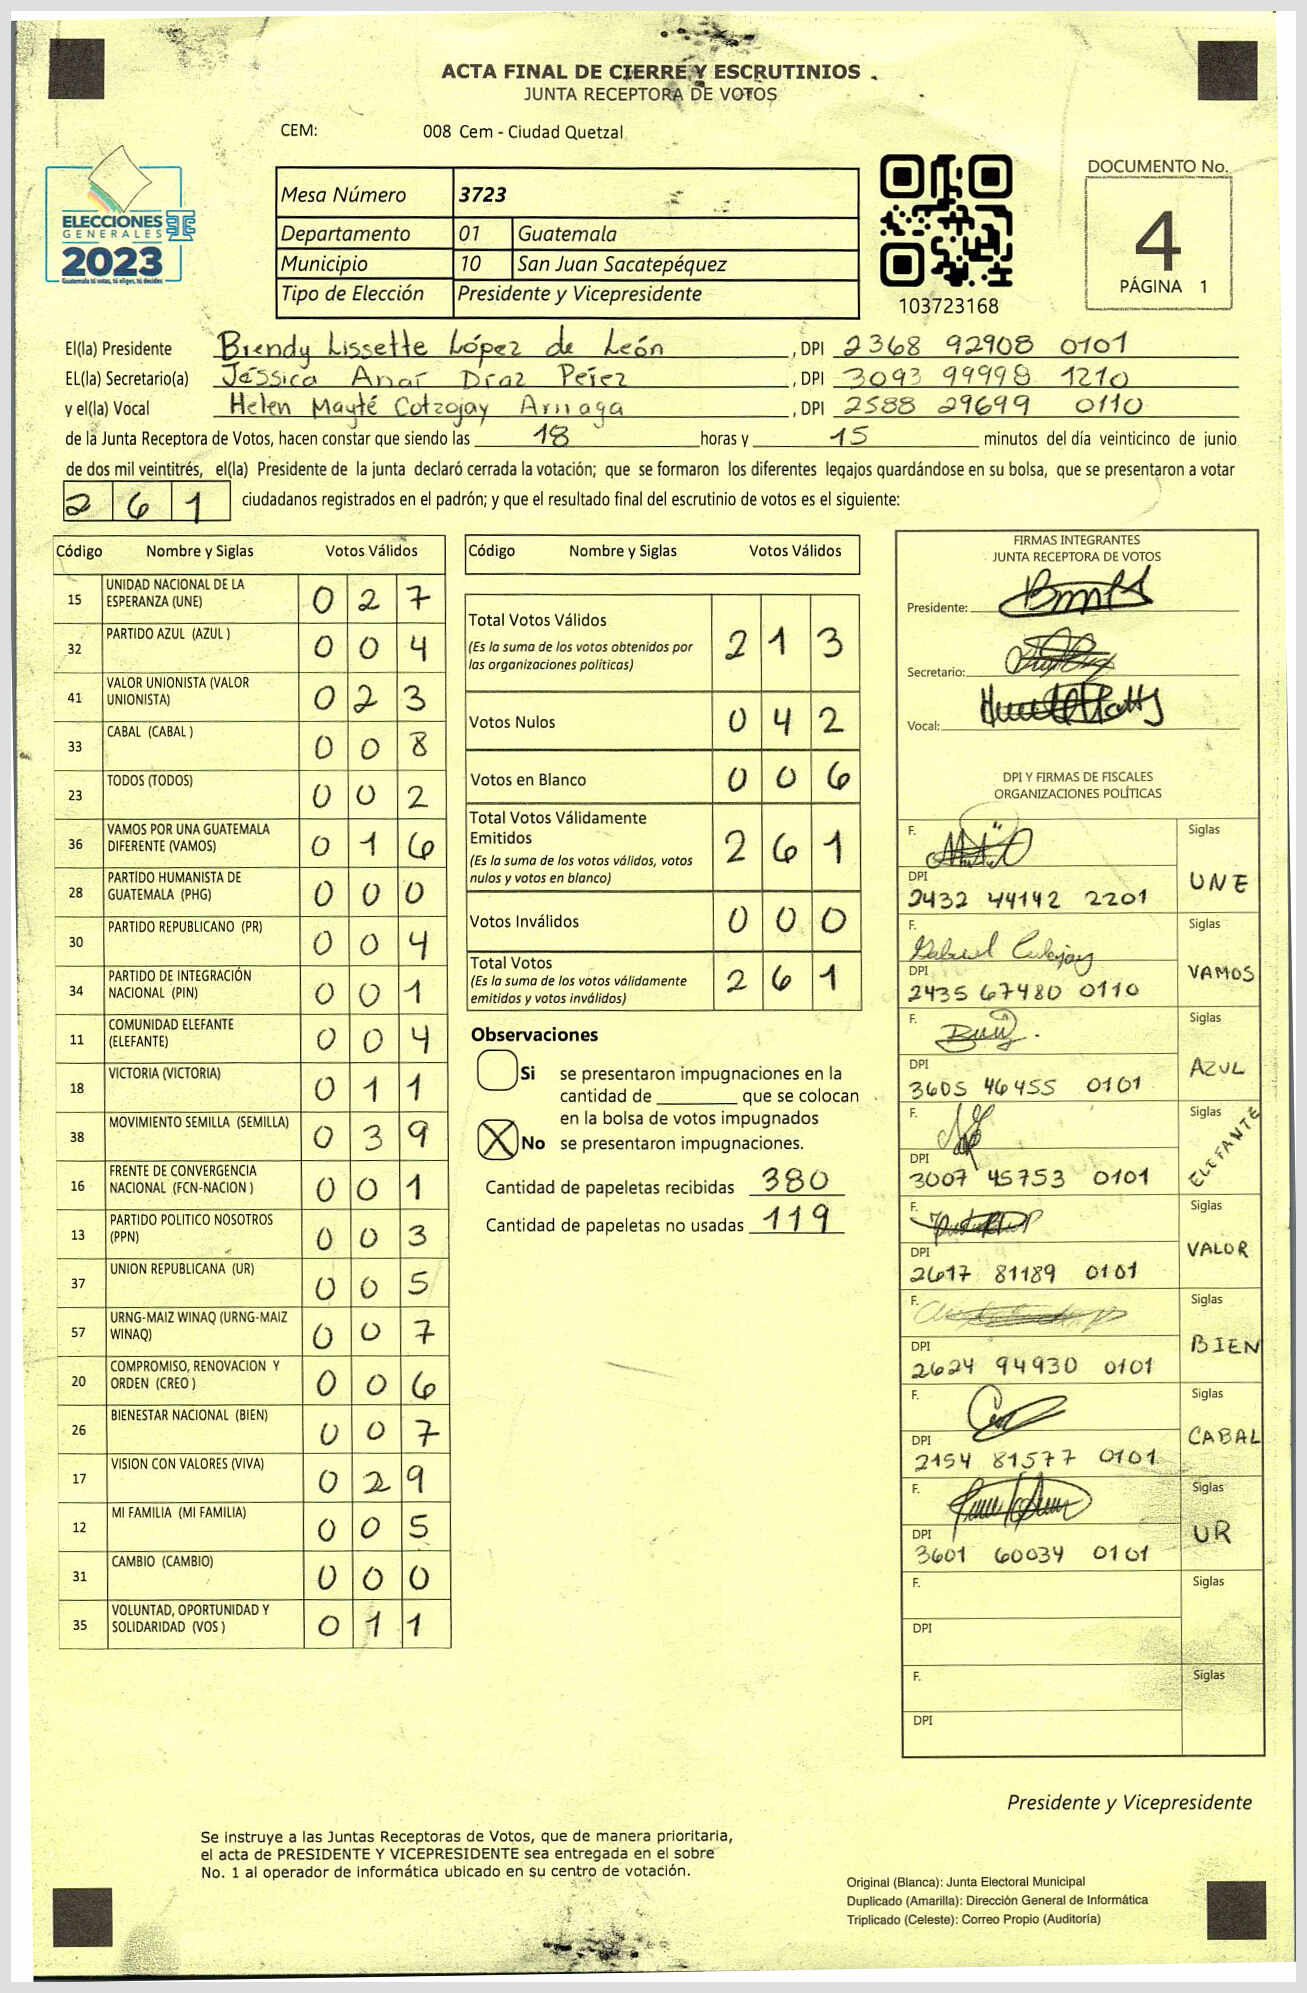 ACTA FINAL DE CIERRE Y ESCRUTINIOS
JUNTA RECEPTORA DE VOTOS
CEM: 008 Cem - Ciudad Quetzal
ELECCIONES
GENERALES
2023
Guatemala tú votas, tú eliges, tú decides
Mesa Número 3723
Departamento 01 Guatemala
Municipio 10 San Juan Sacatepéquez
Tipo de Elección Presidente y Vicepresidente
103723168
DOCUMENTO No.
4
PÁGINA 1
El(la) Presidente Brendy Lissette López de León , DPI 2368 92908 0101
EL(la) Secretario(a) Jéssica Anaí Díaz Pérez , DPI 3093 99998 1210
y el(la) Vocal Helen Mayté Cotzojay Arriaga , DPI 2588 29699 0110
de la Junta Receptora de Votos, hacen constar que siendo las 18 horas y 15 minutos del día veinticinco de junio
de dos mil veintitrés, el(la) Presidente de la junta declaró cerrada la votación; que se formaron los diferentes legajos guardándose en su bolsa, que se presentaron a votar
261 ciudadanos registrados en el padrón; y que el resultado final del escrutinio de votos es el siguiente:
Código Nombre y Siglas Votos Válidos
15 UNIDAD NACIONAL DE LA ESPERANZA (UNE) 0 2 7
32 PARTIDO AZUL (AZUL ) 0 0 4
41 VALOR UNIONISTA (VALOR UNIONISTA) 0 2 3
33 CABAL (CABAL ) 0 0 8
23 TODOS (TODOS) 0 0 2
36 VAMOS POR UNA GUATEMALA DIFERENTE (VAMOS) 0 1 6
28 PARTIDO HUMANISTA DE GUATEMALA (PHG) 0 0 0
30 PARTIDO REPUBLICANO (PR) 0 0 4
34 PARTIDO DE INTEGRACIÓN NACIONAL (PIN) 0 0 1
11 COMUNIDAD ELEFANTE (ELEFANTE) 0 0 4
18 VICTORIA (VICTORIA) 0 1 1
38 MOVIMIENTO SEMILLA (SEMILLA) 0 3 9
16 FRENTE DE CONVERGENCIA NACIONAL (FCN-NACION ) 0 0 1
13 PARTIDO POLITICO NOSOTROS (PPN) 0 0 3
37 UNION REPUBLICANA (UR) 0 0 5
57 URNG-MAIZ WINAQ (URNG-MAIZ WINAQ) 0 0 7
20 COMPROMISO, RENOVACION Y ORDEN (CREO ) 0 0 6
26 BIENESTAR NACIONAL (BIEN) 0 0 7
17 VISION CON VALORES (VIVA) 0 2 9
12 MI FAMILIA (MI FAMILIA) 0 0 5
31 CAMBIO (CAMBIO) 0 0 0
35 VOLUNTAD, OPORTUNIDAD Y SOLIDARIDAD (VOS ) 0 1 1
Código Nombre y Siglas Votos Válidos
Total Votos Válidos 2 1 3
(Es la suma de los votos obtenidos por
las organizaciones políticas)
Votos Nulos 0 4 2
Votos en Blanco 0 0 6
Total Votos Válidamente
Emitidos 2 6 1
(Es la suma de los votos válidos, votos
nulos y votos en blanco)
Votos Inválidos 0 0 0
Total Votos 2 6 1
(Es la suma de los votos válidamente
emitidos y votos inválidos)
Observaciones
Si se presentaron impugnaciones en la
cantidad de ________ que se colocan
en la bolsa de votos impugnados
X No se presentaron impugnaciones.
Cantidad de papeletas recibidas 380
Cantidad de papeletas no usadas 119
FIRMAS INTEGRANTES
JUNTA RECEPTORA DE VOTOS
Presidente:
Secretario:
Vocal:
DPI Y FIRMAS DE FISCALES
ORGANIZACIONES POLÍTICAS
F. Siglas
DPI UNE
2432 44142 2201
F. Siglas
DPI VAMOS
2435 67480 0110
F. Siglas
DPI AZUL
3605 46455 0101
F. Siglas
DPI ELEFANTE
3007 45753 0101
F. Siglas
DPI VALOR
2617 81189 0101
F. Siglas
DPI BIEN
2624 94930 0101
F. Siglas
DPI CABAL
2154 81577 0101
F. Siglas
DPI UR
3601 60034 0101
F. Siglas
DPI
F. Siglas
DPI
Presidente y Vicepresidente
Se instruye a las Juntas Receptoras de Votos, que de manera prioritaria,
el acta de PRESIDENTE Y VICEPRESIDENTE sea entregada en el sobre
No. 1 al operador de informática ubicado en su centro de votación.
Original (Blanca): Junta Electoral Municipal
Duplicado (Amarilla): Dirección General de Informática
Triplicado (Celeste): Correo Propio (Auditoría)